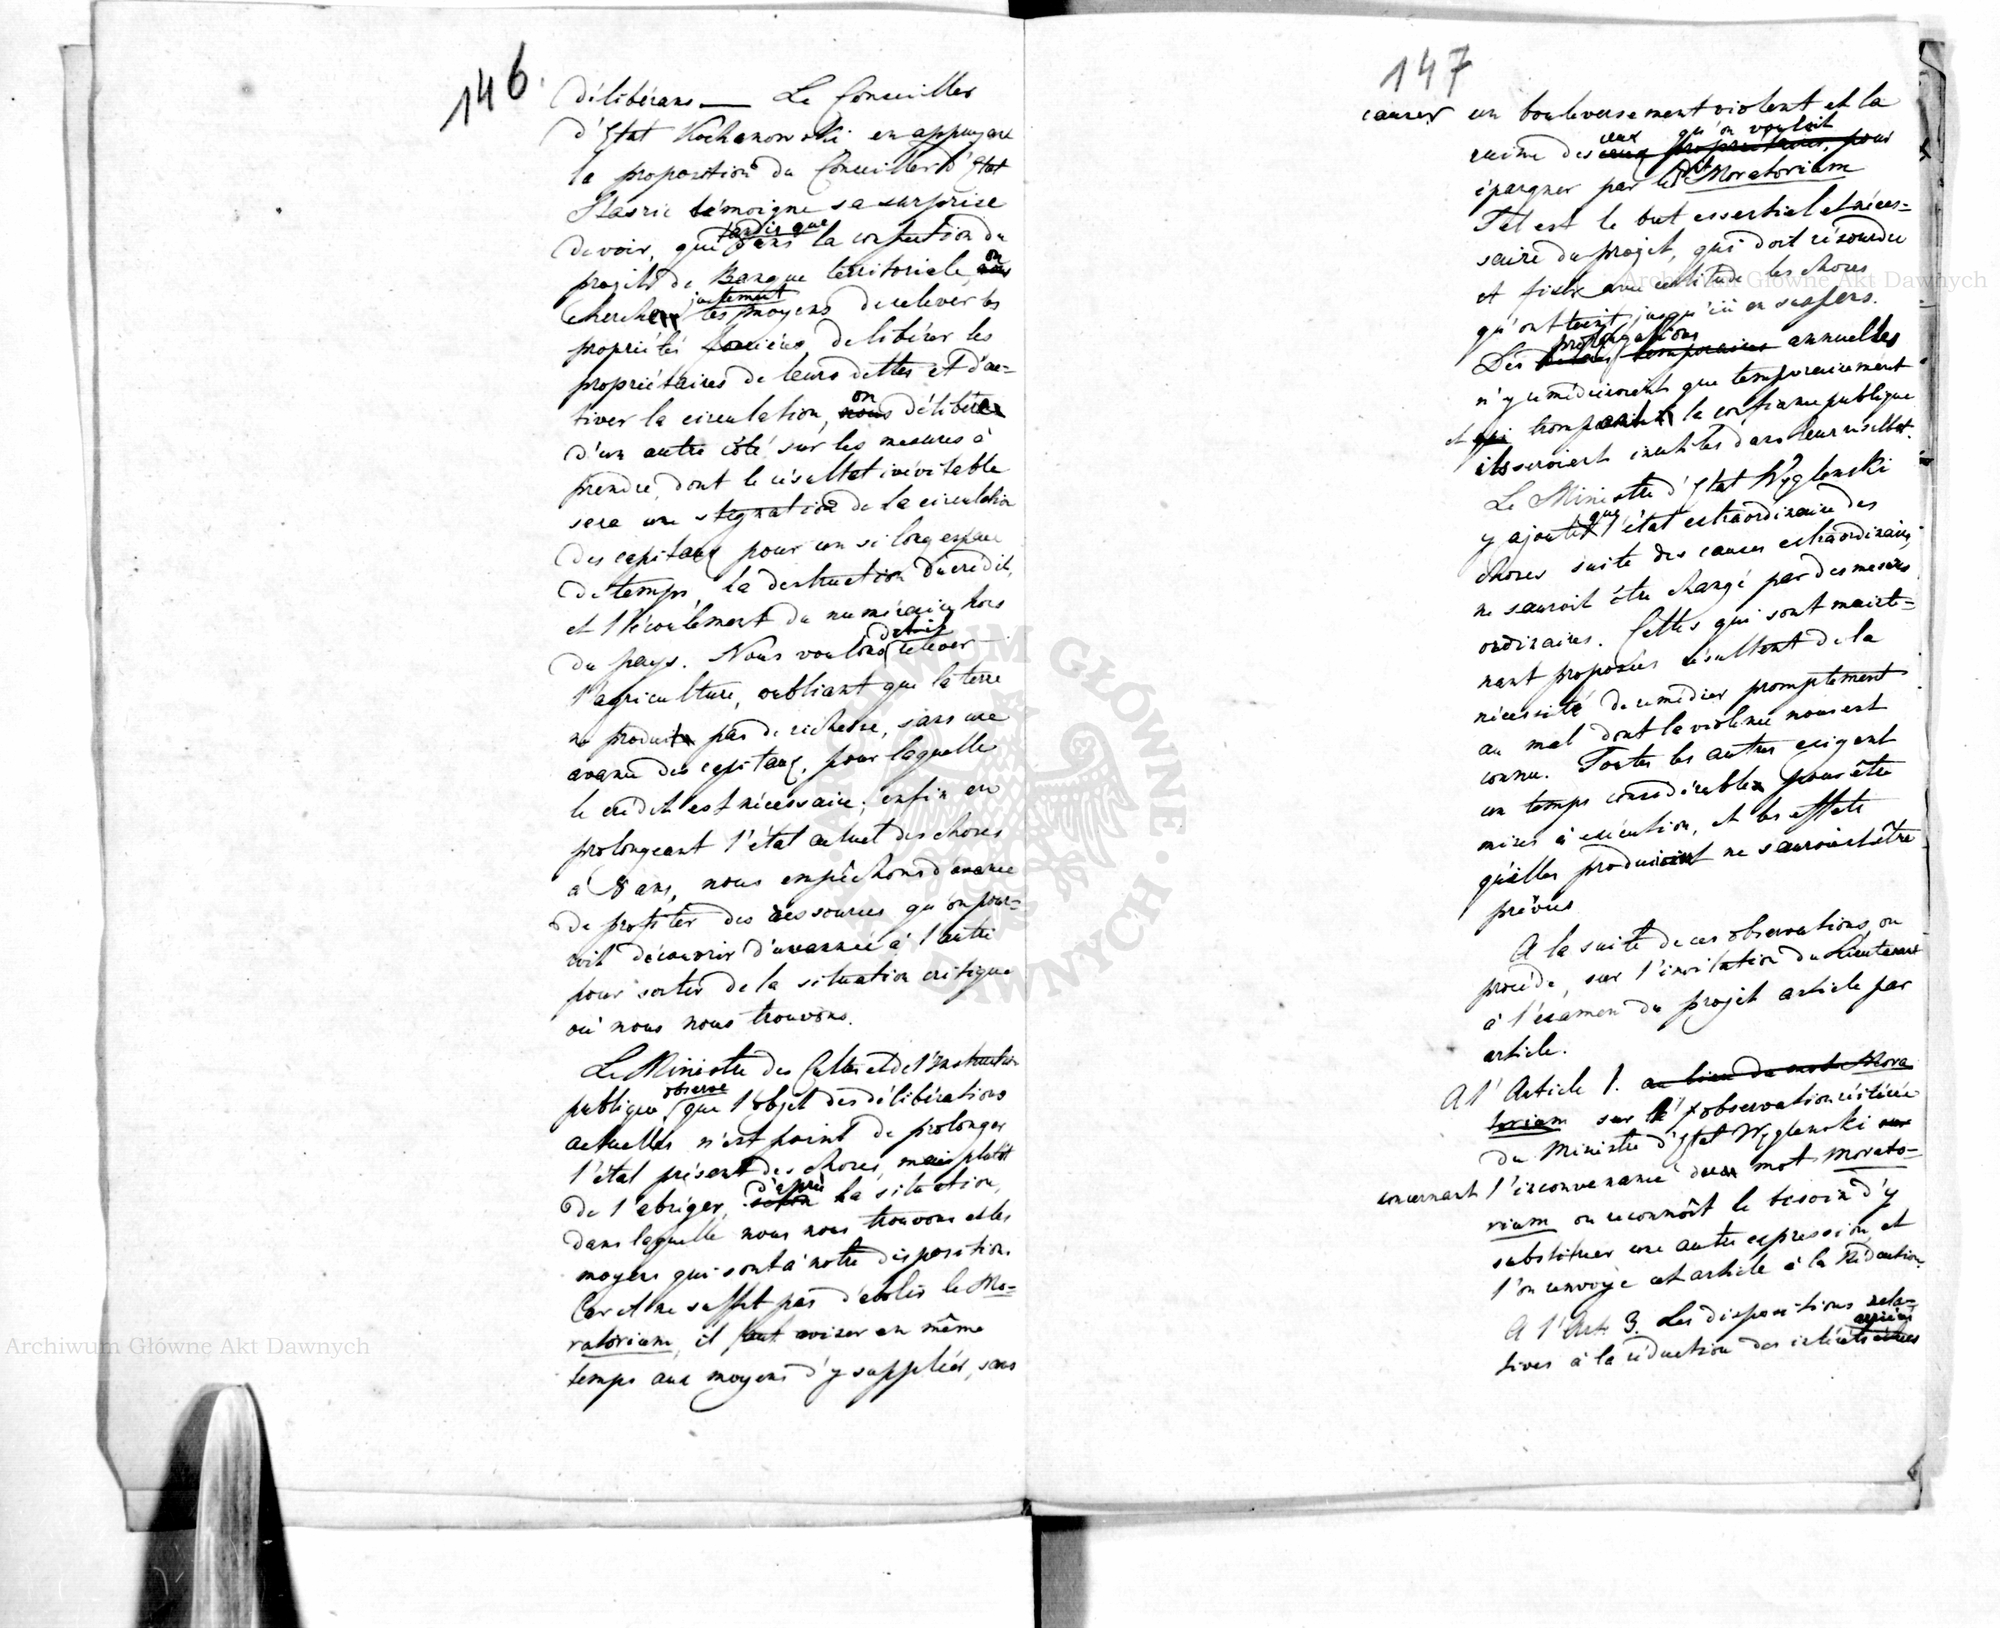 146.
délibérans — Le Conseiller
d'Etat Kochanowski en appuyant
la proposition du Conseiller d'Etat
Staszic témoigne sa surprise
de voir, que tandis que dans la confection du
projet de Banque territoriale, on nous
cherche justement les moyens de relever les
propriétés foncières, de libérer les
propriétaires de leurs dettes et d'ac=
tiver la circulation, on nous délibère
d'un autre côté sur les mesures à
prendre, dont le résultat inévitable
sera une stagnation de la circulation
des capitaux pour un si long espace
de temps, la destruction du crédit,
et l'écoulement du numéraire hors
du pays. Nous voulons relever
l'agriculture, oubliant que la terre
ne produit pas de richesse, sans une
avance des capitaux, pour laquelle
le crédit est nécessaire; enfin en
prolongeant l'état actuel des choses
à 8 ans, nous empêchons d'avance
de profiter des ressources qu'on pour=
roit découvrir d'une année à l'autre
pour sortir de la situation critique
où nous nous trouvons.
Le Ministre des Cultes et de l'Instruction
publique observe que l'objet des délibérations
actuelles n'est point de prolonger
l'état présent des choses, mais plutôt
de l'abréger, d'après selon la situation,
dans laquelle nous nous trouvons et les
moyens qui sont à notre disposition.
Car il ne suffit pas d'abolir le Mo=
ratorium, il faut aviser en même
temps aux moyens d'y suppléer, sans
147
causer un bouleversement violent et la
ruine de ceux qu'on vouloit propriétaires, pour
épargner par le dit Moratorium
Tel est le but essentiel et néces=
saire du projet, qui doit résoudre
et fixer avec certitude les choses
qu'on tient jusqu'ici en suspens.
Des prolongations temporaires annuelles
n'y remédieroient que temporairement
et qui trompant la confiance publique
ils seroient inutiles dans leur résultat.
Le Ministre d'Etat Węgleński
y ajoute que l'état extraordinaire des
choses suite des causes extraordinaires,
ne sauroit être changé par des mesures
ordinaires. Celles qui sont mainte=
nant proposées résultent de la
nécessité de remédier promptement
au mal dont la violence nous est
connue. Toutes les autres exigent
un temps considérable pour être
mises à exécution, et les effets
qu'elles produiroient ne sauroient être
prévus
A la suite de ces observations, on
procède, sur l'invitation du Lieutenant
à l'examen du projet article par
article.
A l'Article 1. au lieu du mot Mora
torium sur l'observation réitérée
du Ministre d'Etat Węgleński sur
concernant l'inconvenance du mot morato=
rium on reconnoît le besoin d'y
substituer une autre expression, et
l'on renvoye cet article à la Rédaction.
A l'Art. 3. Les dispositions rela=
tives à la réduction des intérêts arriérés
Archiwum Główne Akt Dawnych
Archiwum Główne Akt Dawnych
ARCHIWUM GŁÓWNE AKT DAWNYCH